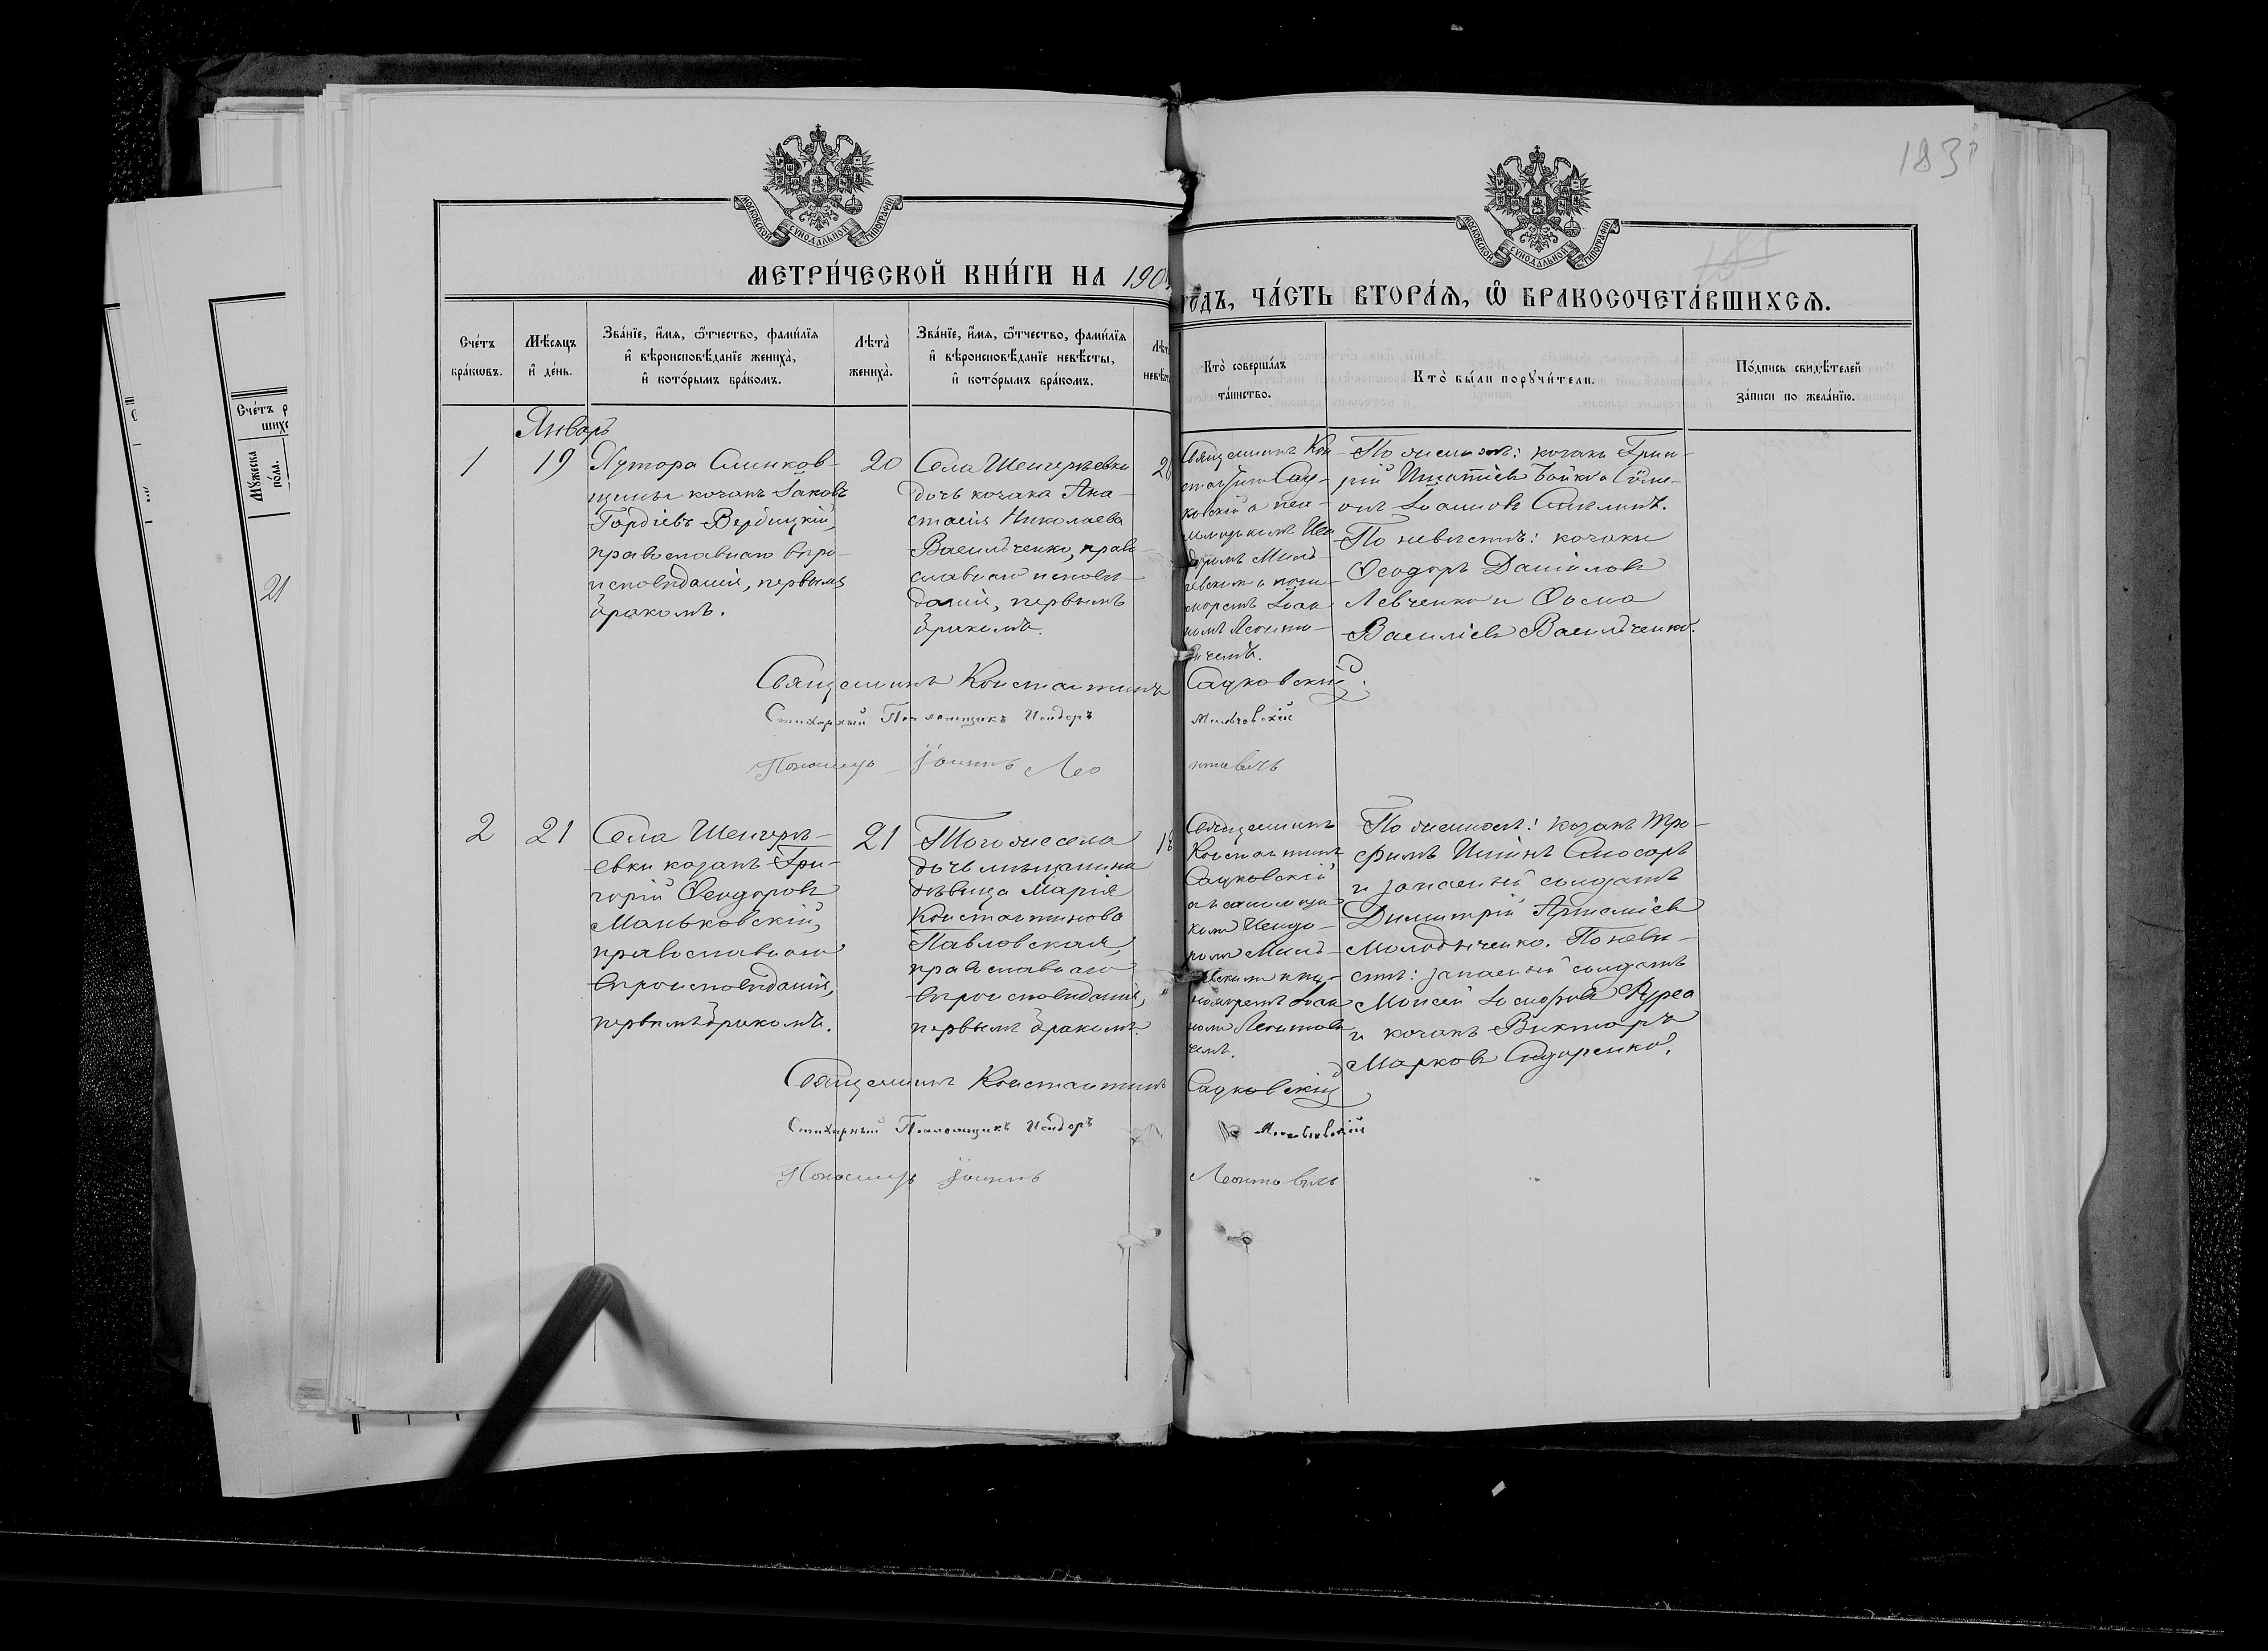 183
МОСКОВСКОЙ СУНОДАЛЬНОЙ ТИПОГРАФІИ
МОСКОВСКОЙ СУНОДАЛЬНОЙ ТИПОГРАФІИ
МЕТРИ́ЧЕСКОЙ КНИ́ГИ НА 190
ГОДЪ, ЧА́СТЬ ВТОРА́Я, Ѽ БРАКОСОЧЕТА́ВШИХСЯ.
Сче́тъ
бра́кѡвъ.
Мѣ́сяцъ
и҆ де́нь.
Зва́нїе, и҆́мя, ѻ҆́тчество, фами́лїя
и҆ вѣроисповѣ́данїе жениха̀,
и҆ кото́рымъ бра́комъ.
Лѣта̀
жениха̀.
Зва́нїе, и҆́мя, ѻ҆́тчество, фами́лїя
и҆ вѣроисповѣ́данїе невѣ́сты,
и҆ кото́рымъ бра́комъ.
Кто̀ соверша́лъ
та́инство.
Кто̀ бы́ли порꙋчи́тели.
По́дпись свидѣ́телей
за́писи по жела́нїю.
Январь
1
19
Хутора Слинков-
щины козакъ Іаковъ
Гордіевъ Вербицкій,
православнаго вѣро-
исповѣданія, первымъ
бракомъ.
20
Села Шенгерѣевки
дочь козака Ана-
стасія Николаева
Васильченко, право-
славнаго исповѣ-
данія, первымъ
бракомъ.
Священникъ Кон-
стантинъ Сад-
ковскій
Исидоромъ
Іоан-
номъ Леонто-
вичемъ.
По женихѣ: козаки Григо-
рій Игнатіевъ Бойко и Симе-
онъ Іоанновъ
По невѣстѣ: козаки
Ѳеодоръ Даніиловъ
Левченко и Ѳома
Василіевъ Васильченко.
Священникъ Константинъ Садковскій.
Стихарный Псаломщикъ Исидоръ
Пономарь Іоаннъ Леонтовичъ
2
21
Села Шенгерѣ-
евки козакъ Гри-
горій Ѳеодоровъ
Маньковскій,
православнаго
вѣроисповѣданія,
первымъ бракомъ.
21
Того же села
дочь мѣщанина
дѣвица Марія
Константинова
Павловская,
православнаго
вѣроисповѣданія,
первымъ бракомъ.
18
Священникъ
Константинъ
Садковскій
съ псаломщи-
комъ Исидо-
ромъ
Іоан-
номъ Леонтови-
чемъ.
По женихѣ: козакъ Тро-
фимъ Слюсарь
и запасный солдатъ
Димитрій Артеміевъ
Молодыченко. По невѣ-
стѣ: запасный солдатъ
Моисей Іосифовъ
и козакъ Викторъ
Марковъ Сидоренко.
Священникъ Константинъ Садковскій
Стихарный Псаломщикъ Исидоръ
Пономарь Іоаннъ Леонтовичъ
Мꙋ́жеска
по́ла.
21